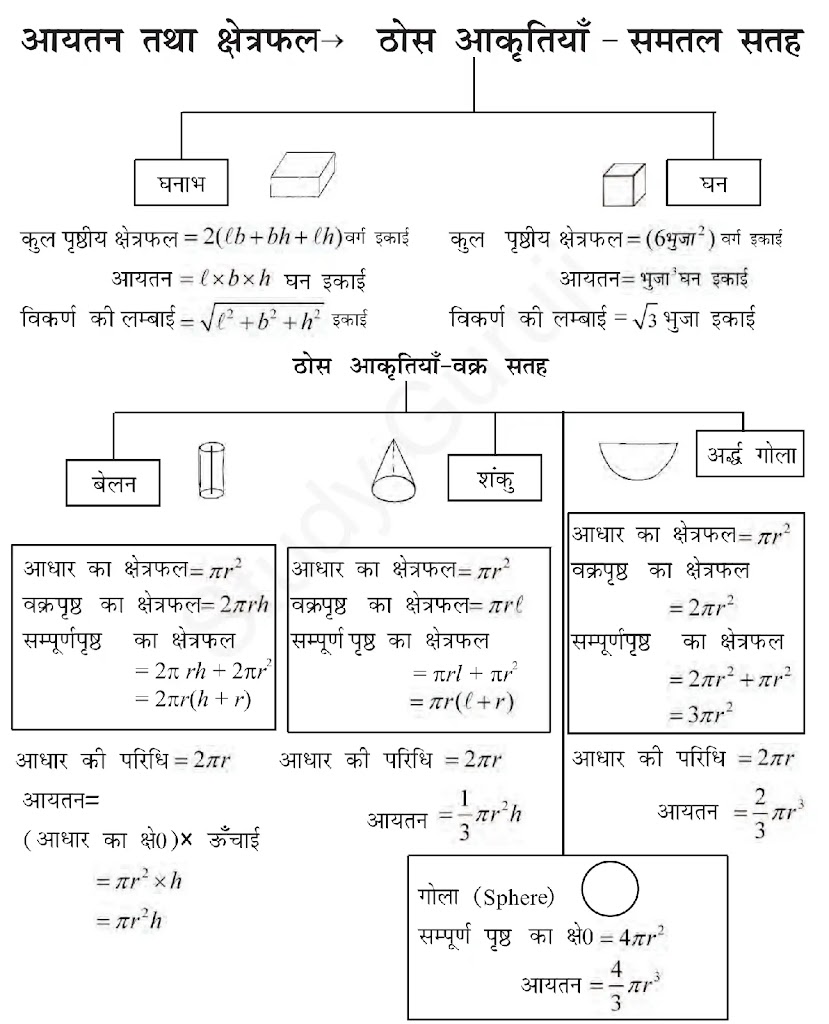 आयतन तथा क्षेत्रफल→ ठोस आकृतियाँ – समतल सतह
घनाभ
कुल पृष्ठीय क्षेत्रफल = 2(ℓb + bh + ℓh) वर्ग इकाई
आयतन = ℓ×b×h घन इकाई
विकर्ण की लम्बाई = √(ℓ² + b² + h²) इकाई
घन
कुल पृष्ठीय क्षेत्रफल = (6भुजा²) वर्ग इकाई
आयतन= भुजा³ घन इकाई
विकर्ण की लम्बाई = √3 भुजा इकाई
ठोस आकृतियाँ-वक्र सतह
बेलन
आधार का क्षेत्रफल = πr²
वक्रपृष्ठ का क्षेत्रफल= 2πrh
सम्पूर्णपृष्ठ का क्षेत्रफल
= 2π rh + 2πr²
= 2πr(h + r)
आधार की परिधि = 2πr
आयतन=
(आधार का क्षे0)× ऊँचाई
= πr² × h
= πr²h
शंकु
आधार का क्षेत्रफल= πr²
वक्रपृष्ठ का क्षेत्रफल= πrℓ
सम्पूर्ण पृष्ठ का क्षेत्रफल
= πrl + πr²
= πr(ℓ + r)
आधार की परिधि = 2πr
आयतन = 1/3 πr²h
अर्द्ध गोला
आधार का क्षेत्रफल= πr²
वक्रपृष्ठ का क्षेत्रफल
= 2πr²
सम्पूर्णपृष्ठ का क्षेत्रफल
= 2πr² + πr²
= 3πr²
आधार की परिधि = 2πr
आयतन = 2/3 πr³
गोला (Sphere)
सम्पूर्ण पृष्ठ का क्षे0 = 4πr²
आयतन = 4/3 πr³
Study Guruji